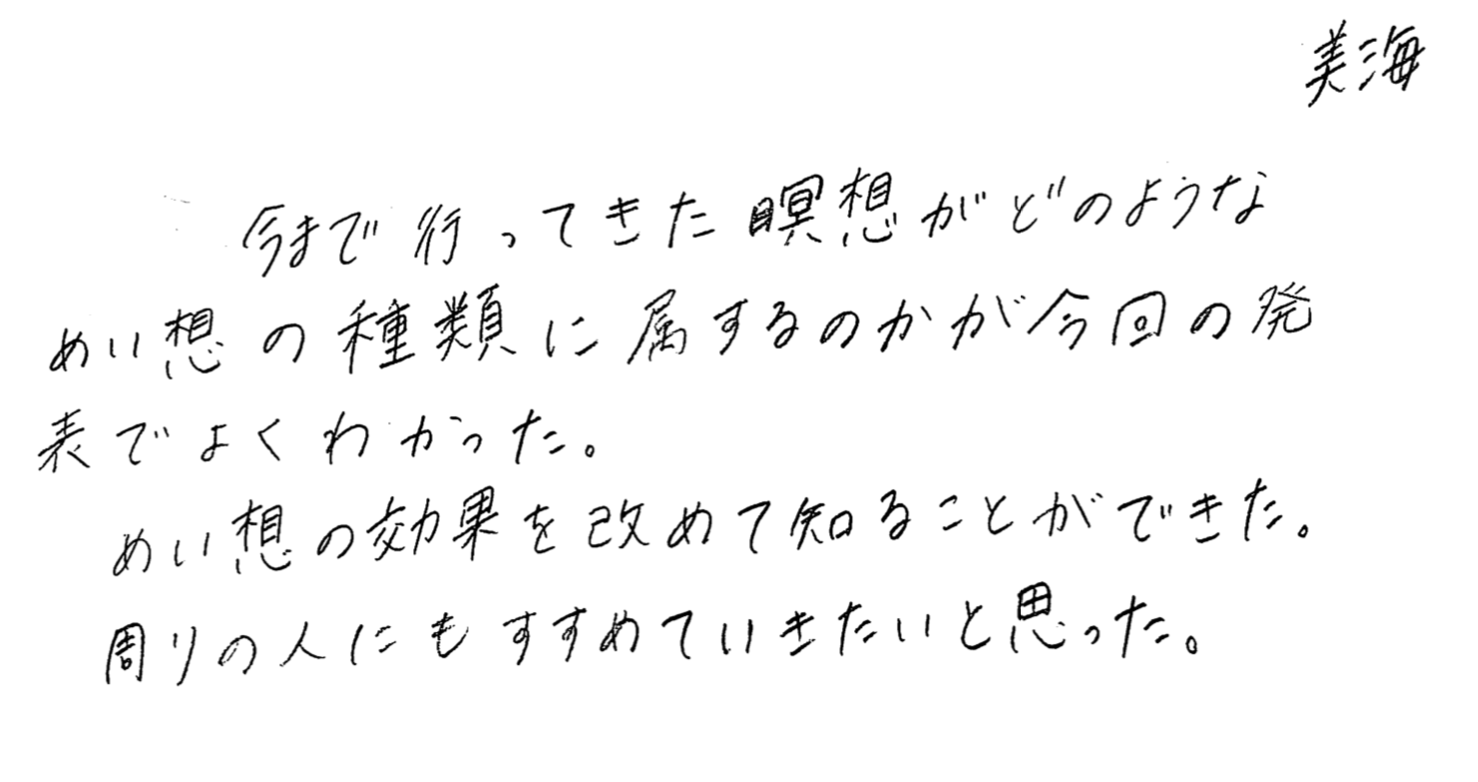 美海
今まで行ってきた瞑想がどのような
めい想の種類に属するのかが今回の発
表でよくわかった。
めい想の効果を改めて知ることができた。
周りの人にもすすめていきたいと思った。